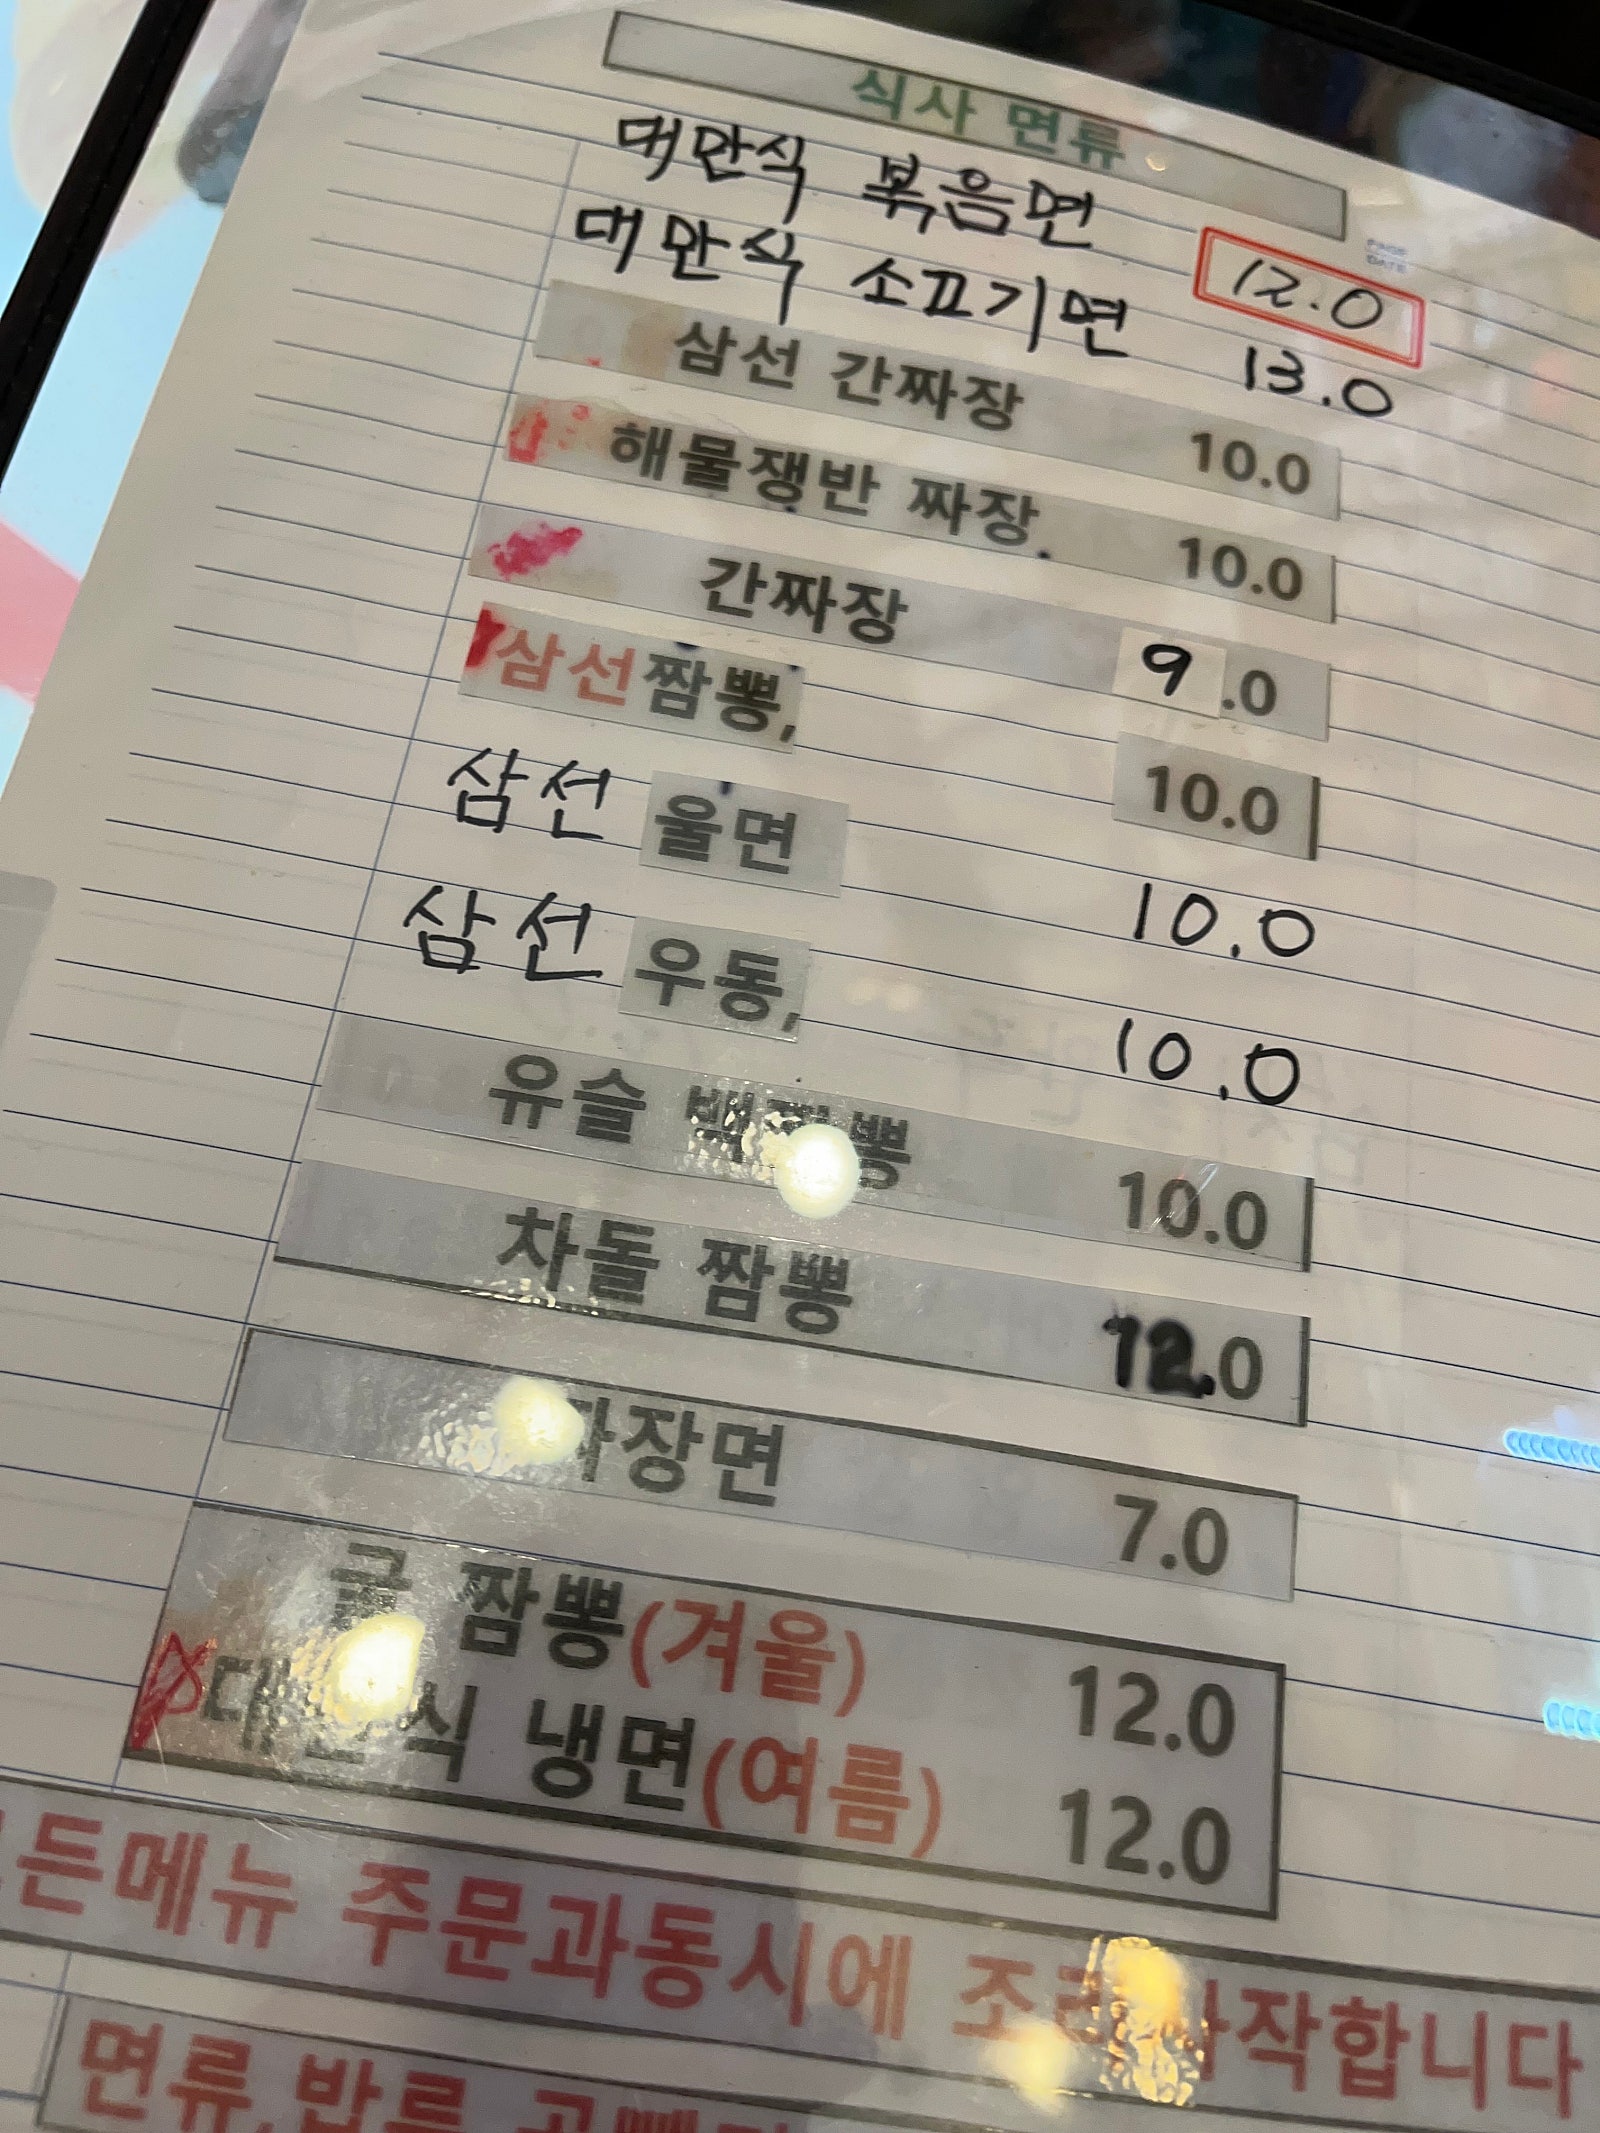 식사 면류
대만식 볶음면 12.0
대만식 소고기면 13.0
삼선 간짜장 10.0
해물쟁반 짜장. 10.0
간짜장 9.0
삼선짬뽕, 10.0
삼선 울면 10.0
삼선 우동, 10.0
유슬 10.0
차돌 짬뽕 12.0
짜장면 7.0
굴 짬뽕(겨울) 12.0
대만식 냉면(여름) 12.0
모든메뉴 주문과동시에 조리시작합니다
면류,밥류